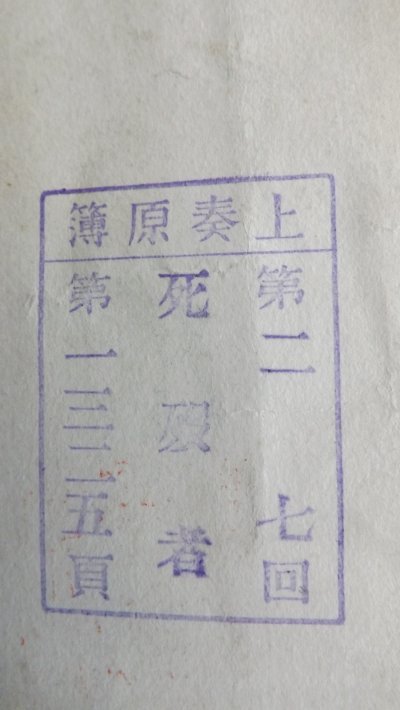 上奏原簿
第二 七回
死歿者
第一三三二五頁